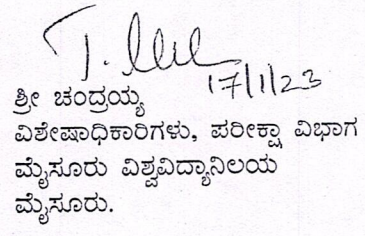 17/1/23
ಶ್ರೀ ಚಂದ್ರಯ್ಯ
ವಿಶೇಷಾಧಿಕಾರಿಗಳು, ಪರೀಕ್ಷಾ ವಿಭಾಗ
ಮೈಸೂರು ವಿಶ್ವವಿದ್ಯಾನಿಲಯ
ಮೈಸೂರು.